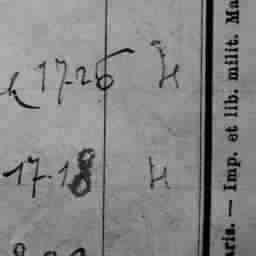 h 17-25 H
17-18 H
aris. — Imp. et lib. milit. Ma